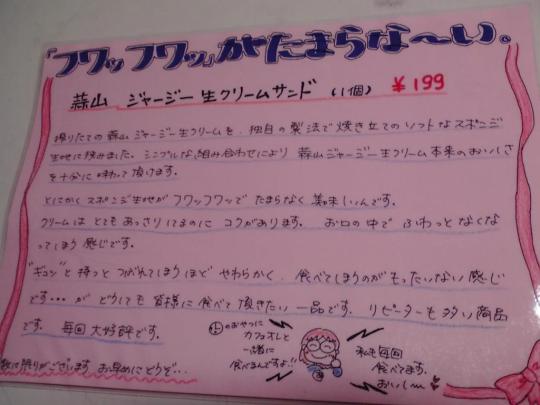 『フワッフワッ』がたまらな〜い。
蒜山 ジャージー生クリームサンド (1個) ¥199
搾りたての蒜山ジャージー生クリームを、独自の製法で焼き立てのソフトなスポンジ
生地に挟みました。シンプルな組み合わせにより 蒜山ジャージー生クリーム本来のおいしさ
を十分に味わって頂けます。
とにかくスポンジ生地がフワッフワッで たまらなく美味しいんです。
クリームはとてもあっさりしてるのに コクがあります。 お口の中で ふわっとなくな
ってしまう感じです。
"ギュッ"と持つとつぶれてしまうほど やわらかく、食べてしまうのがもったいない感じ
です…が どうしても皆様に食べて頂きたい一品です。リピーターも多い商品
です。 毎回大好評です。
のおやつに
カフェオレと
一緒に
食べるんですよ!!
私も毎回
食べてます。
おいし〜
数に限りがございます。お早めにどうぞ…